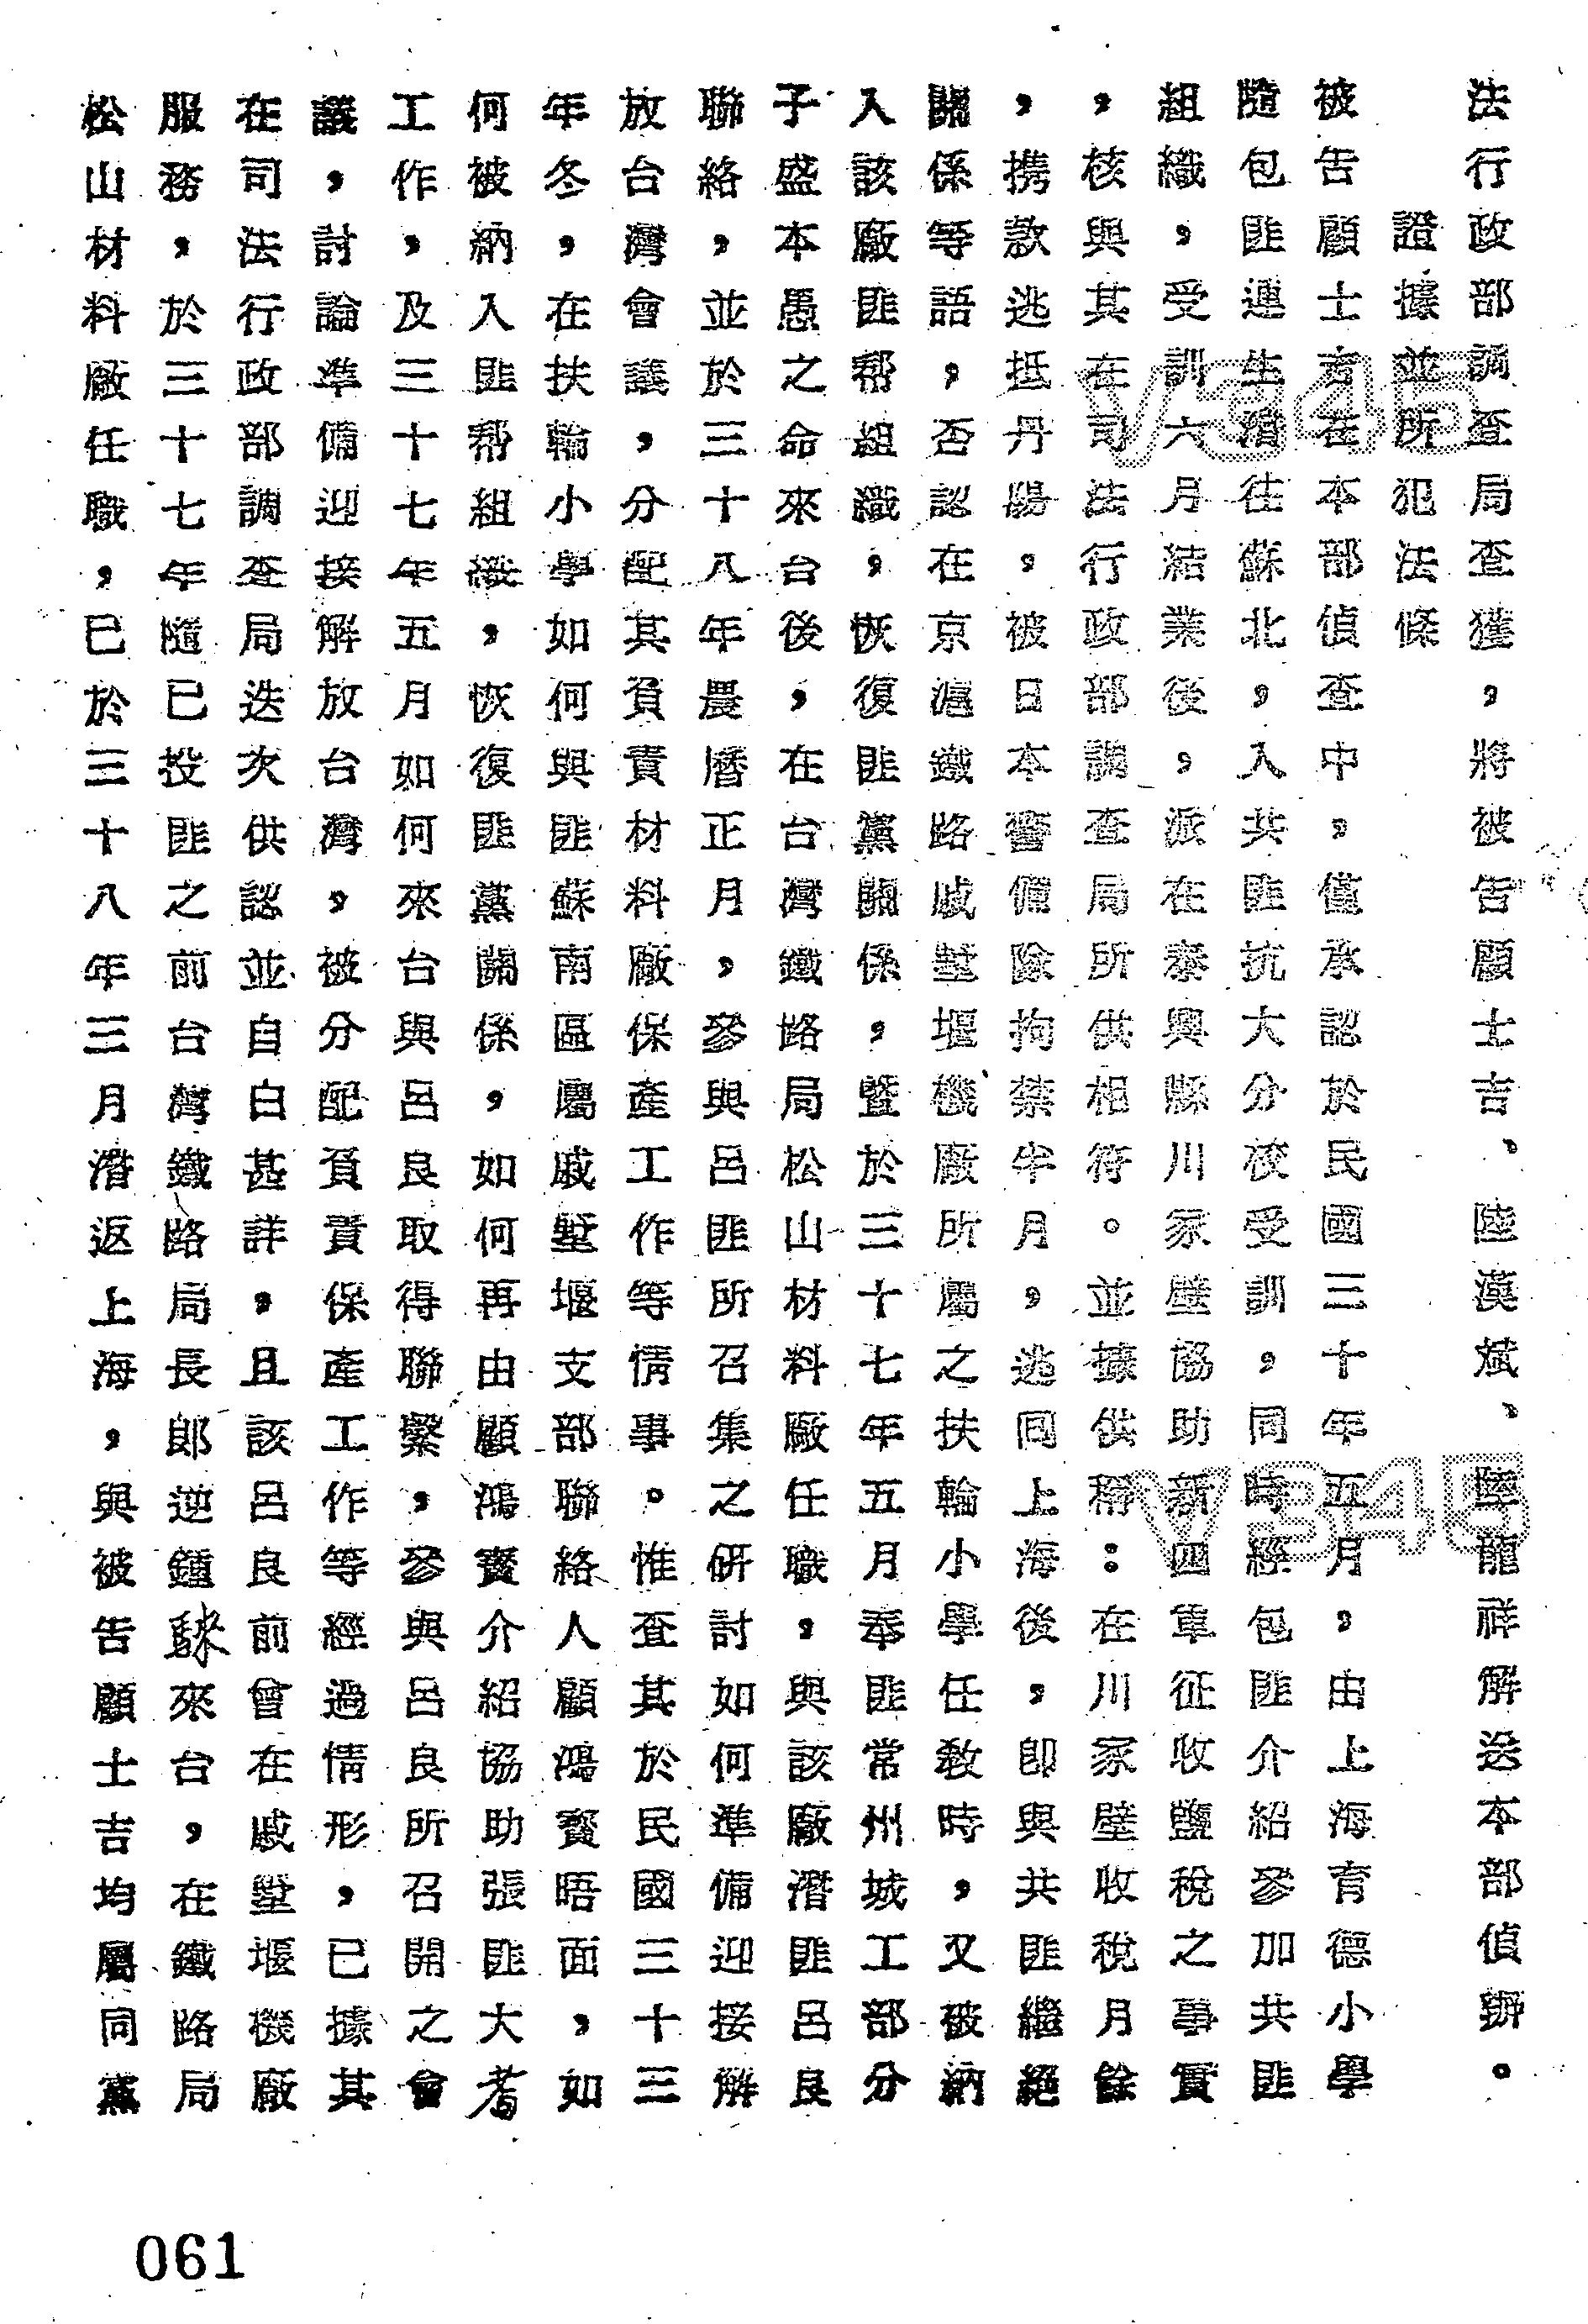 法行政部調查局查獲，將被告顧士吉、陸漢斌、陸龍祥解送本部偵辦。
證據並所犯法條
被告顧士吉在本部偵查中，僅承認於民國三十年五月，由上海育德小學
隨包匪連生潛往蘇北，入共匪抗大分校受訓，同時經包匪介紹參加共匪
組織，受訓六月結業後，派在泰興縣川家壁協助新四軍征收鹽稅之事實
，核與其在司法行政部調查局所供相符。並據供稱：在川家壁收稅月餘
，携款逃抵丹陽，被日本警備隊拘禁半月，逃回上海後，即與共匪繼絕
關係等語，否認在京滬鐵路戚墅堰機廠所屬之扶輪小學任教時，又被納
入該廠匪幫組織，恢復匪黨關係，暨於三十七年五月奉匪常州城工部分
子盛本愚之命來台後，在台灣鐵路局松山材料廠任職，與該廠潛匪呂良
聯絡，並於三十八年農曆正月，參與呂匪所召集之研討如何準備迎接解
放台灣會議，分配其負責材料廠保產工作等情事。惟查其於民國三十三
年冬，在扶輪小學如何與匪蘇南區屬戚墅堰支部聯絡人顧鴻賓晤面，如
何被納入匪幫組織，恢復匪黨關係，如何再由顧鴻賓介紹協助張匪大耆
工作，及三十七年五月如何來台與呂良取得聯繫，參與呂良所召開之會
議，討論準備迎接解放台灣，被分配負責保產工作等經過情形，已據其
在司法行政部調查局迭次供認，並自白甚詳，且該呂良前曾在戚墅堰機廠
服務，於三十七年隨已投匪之前台灣鐵路局長郎逆鍾騋來台，在鐵路局
松山材料廠任職，已於三十八年三月潛返上海，與被告顧士吉均屬同黨
061
V345
V345